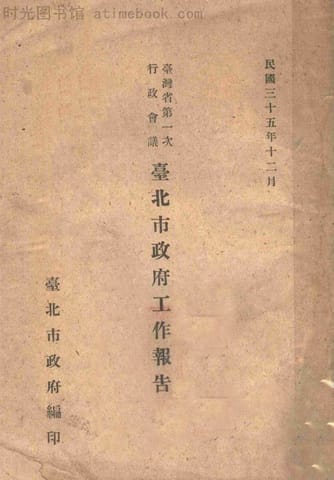 时光图书馆 - atimebook.com
民國三十五年十二月
臺灣省第一次
行政會議
臺北市政府工作報告
臺北市政府編印